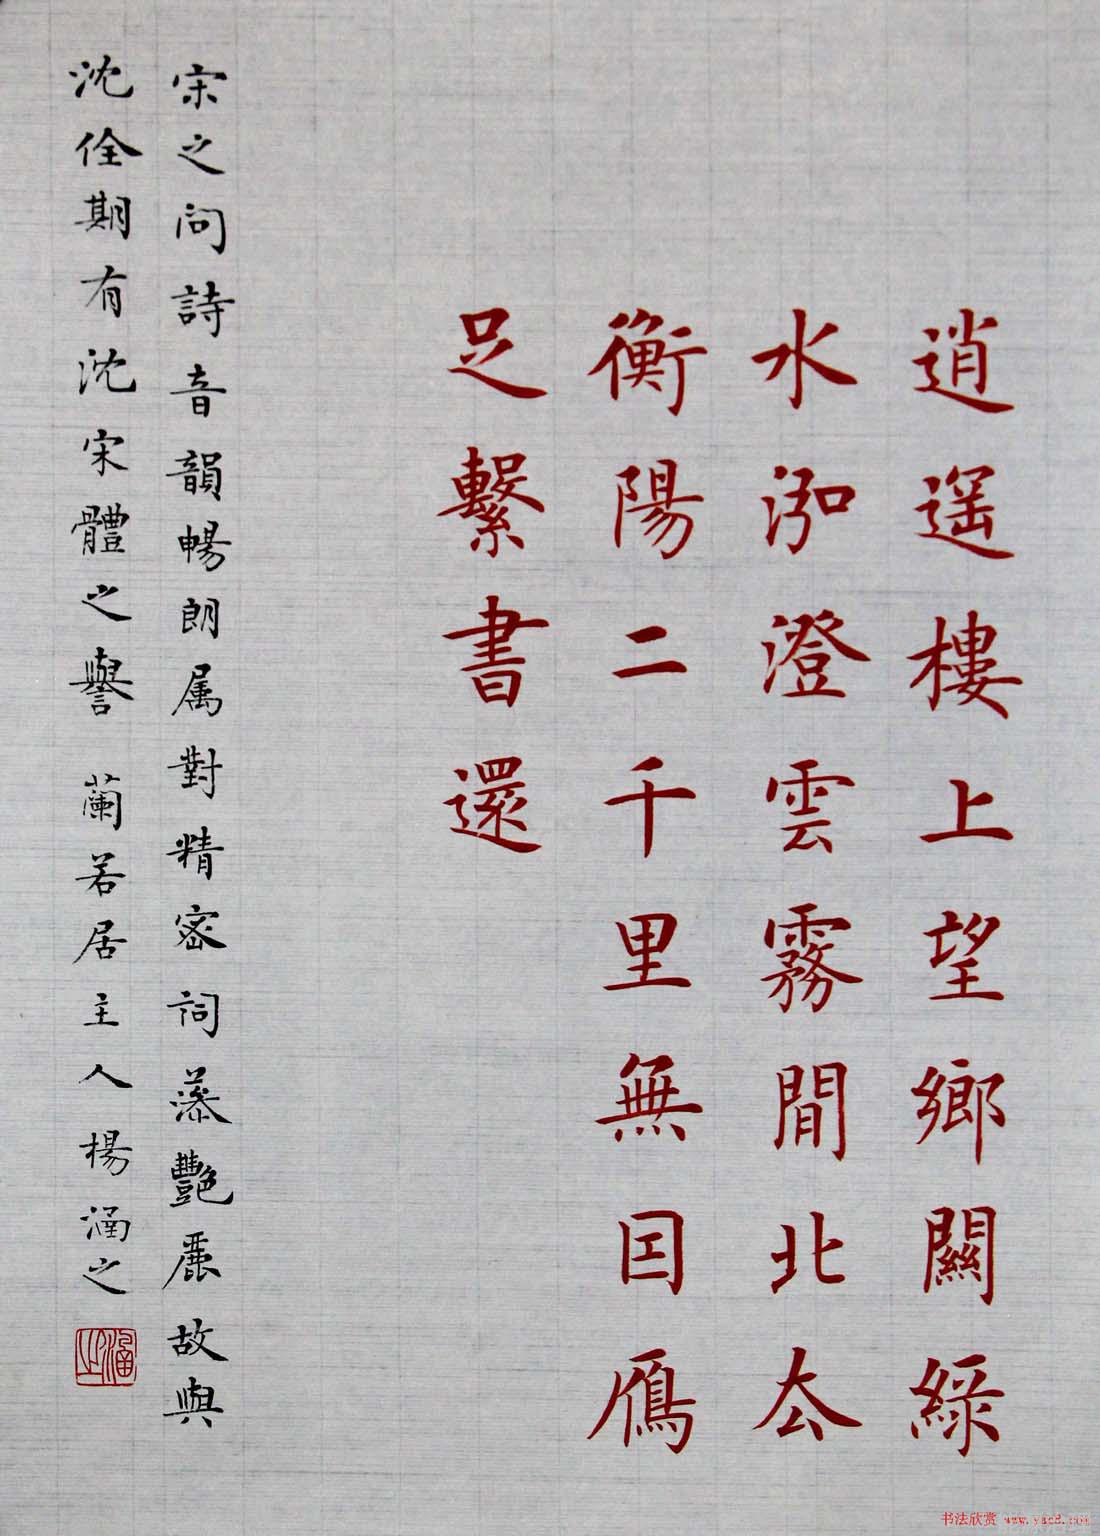 逍遥樓上望鄉關綠
水泓澄雲霧間北厺
衡陽二千里無囙雁
足繫書還
宋之问詩音韻暢朗属對精密词藻艷麗故與
沈佺期有沈宋體之譽 蘭若居主人楊涵之
涵之
书法欣赏 www.yacd.com